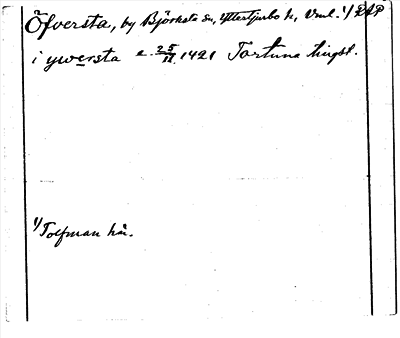 Öfversta, by Björksta sn, Yttertjurbo h, Vml. 1) RAP
i ywersta a. 25/11 1421 Tortuna tingst.
1) Tolfman här.